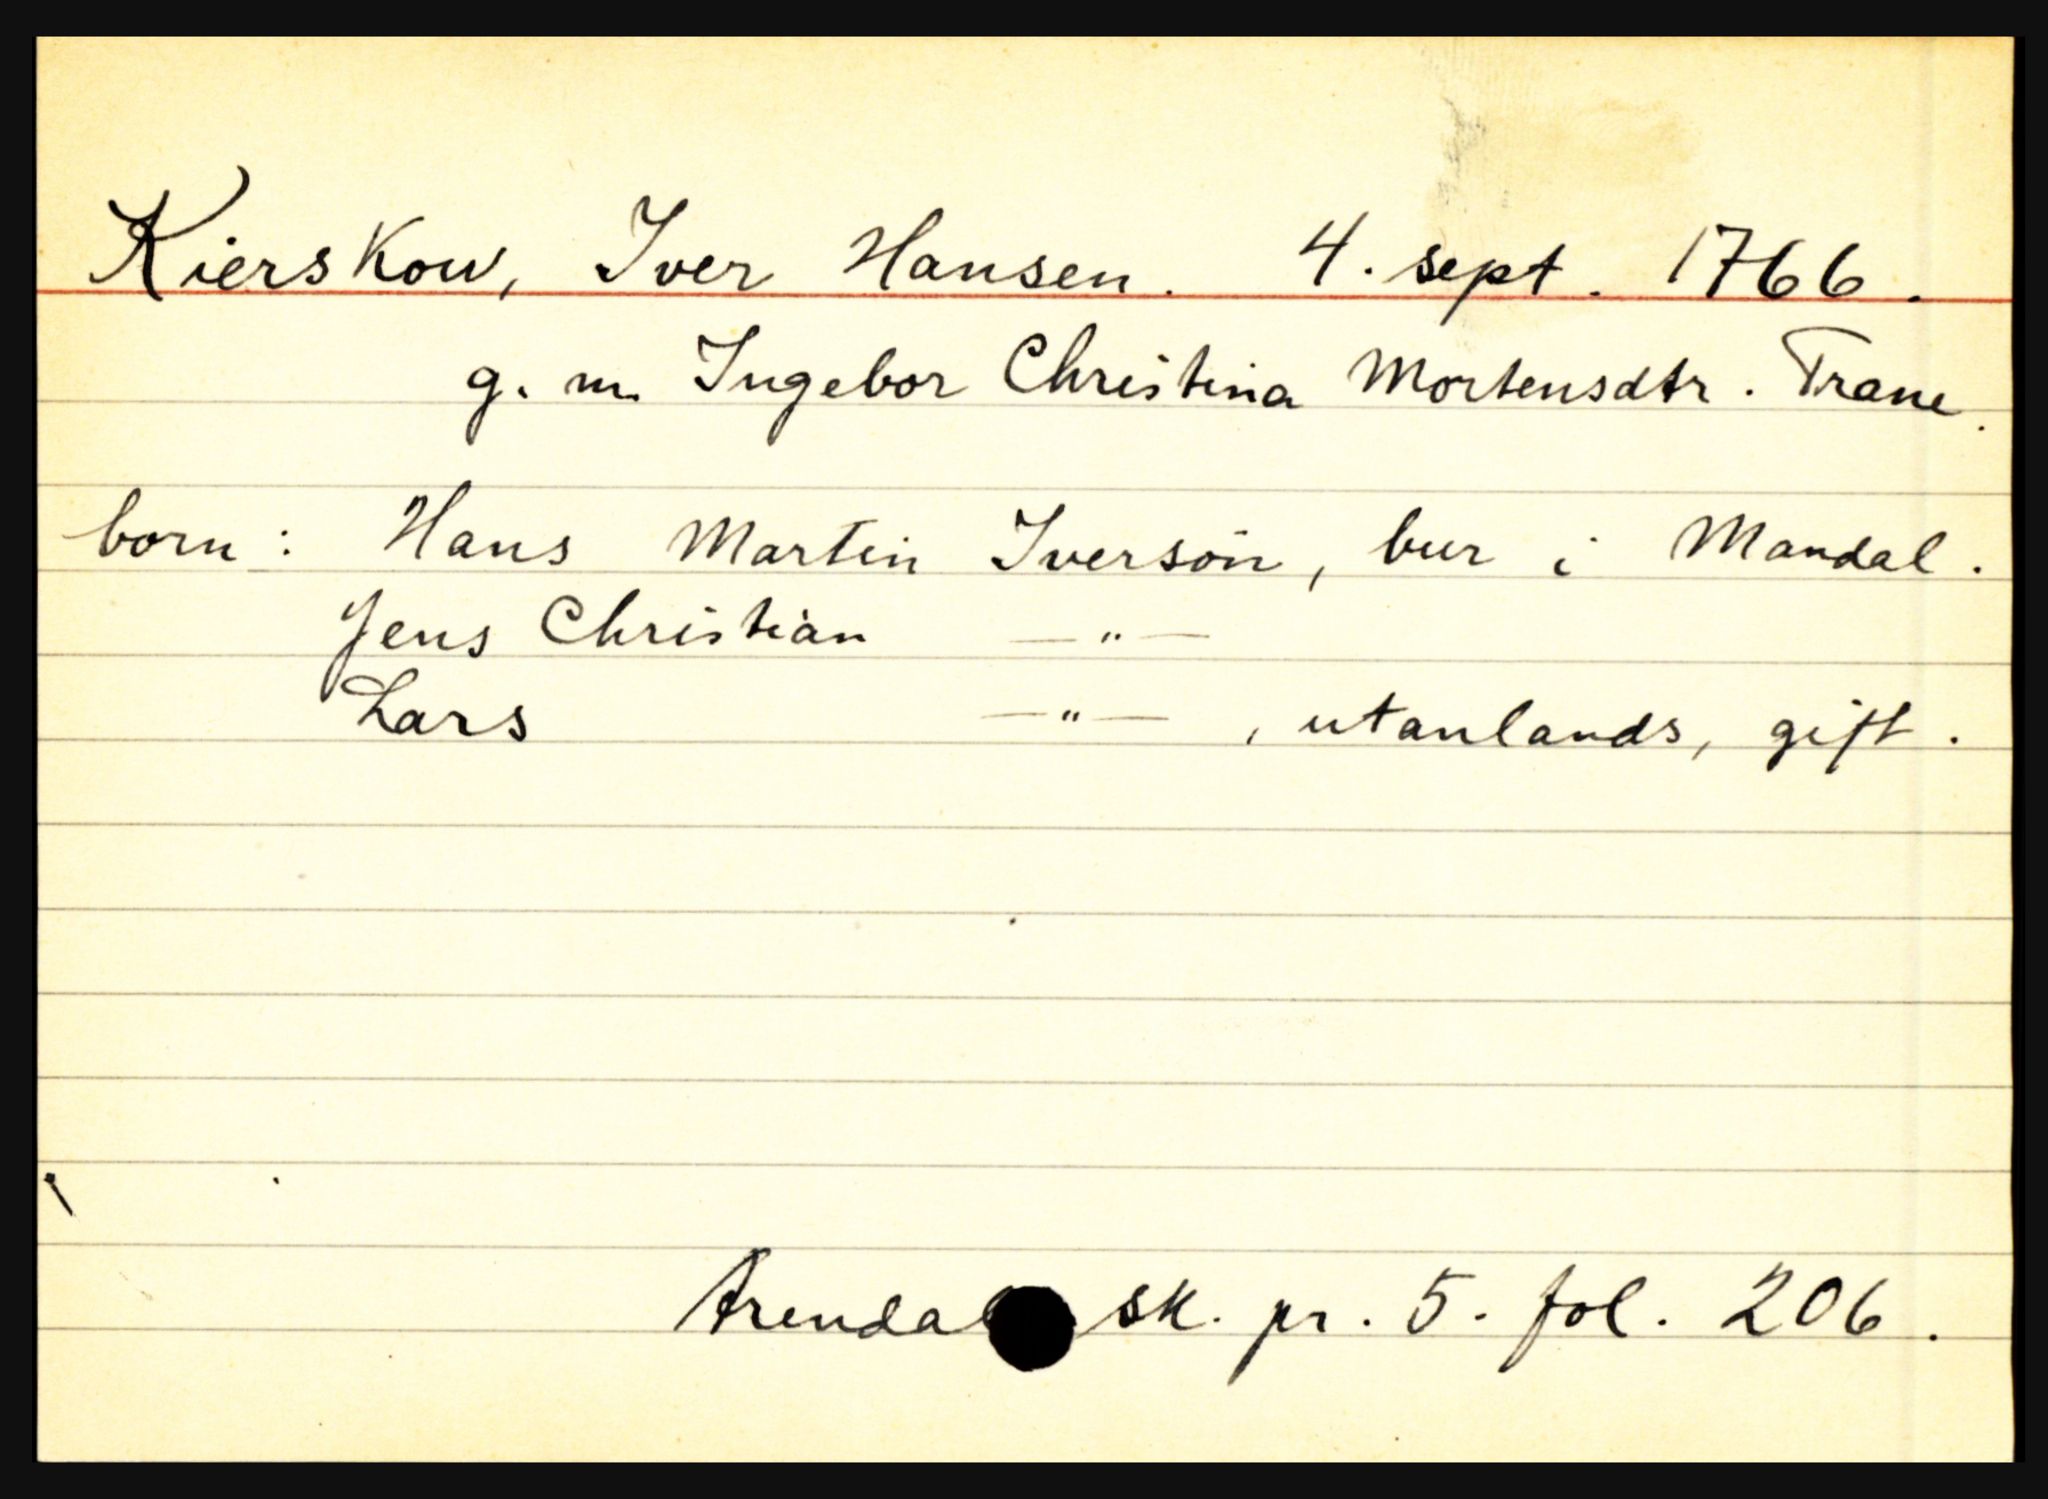 Kierskow, Iver Hansen. 4. sept. 1766.
g. m. Ingebor Christina Mortensdtr. Trane.
born: Hans Martin Iverson, bur i Mandal.
Jens Christian —"—
Lars —"— , utanlands, gift.
Arendal sk. pr. 5. fol. 206.